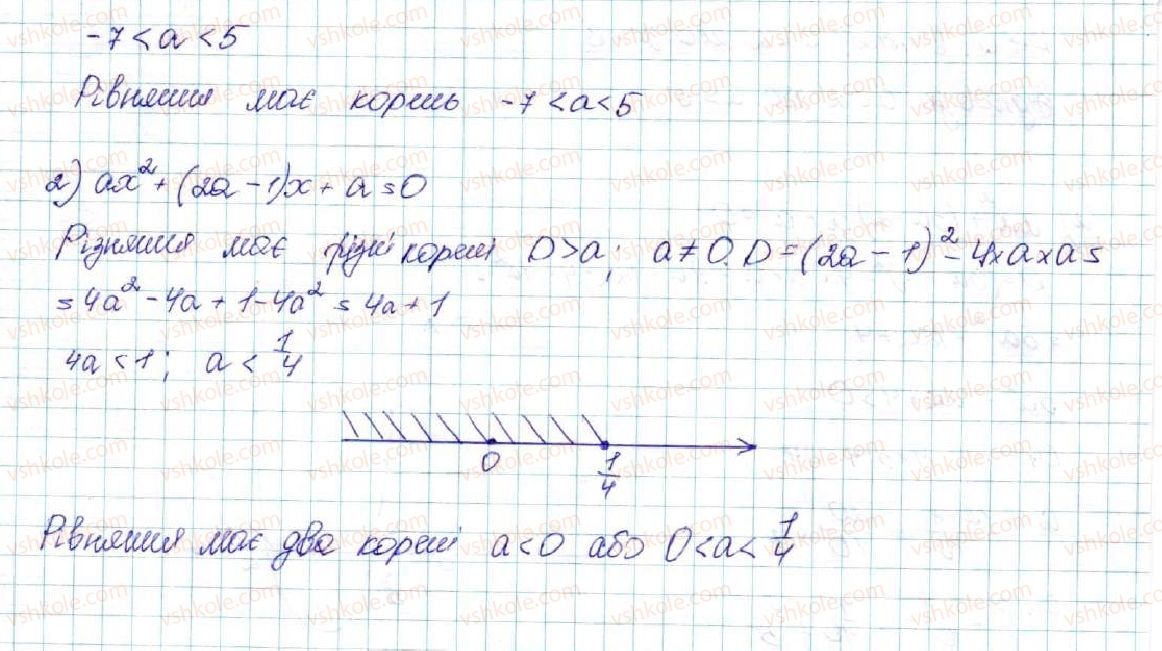 -7 < a < 5
Рівняння має корень -7 < a < 5
2) ax² + (2a - 1)x + a = 0
Різняння має різні корені D > a; a ≠ 0. D = (2a - 1)² - 4 × a × a =
= 4a² - 4a + 1 - 4a² = 4a + 1
4a < 1; a < 1/4
0 1/4
Рівняння має два корені a < 0 або 0 < a < 1/4